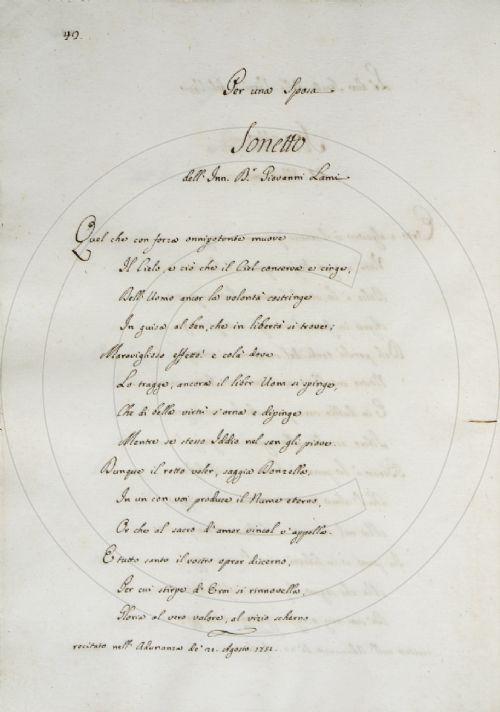 49.
Per una Sposa
Sonetto
dell' Inn. B.r Giovanni Lami
Quel che con forza onnipotente muove
Il Cielo, e ciò che il Ciel conserva e cinge,
Dell' Uomo ancor la volontà costringe
In guisa al ben, che in libertà si trove;
Maraviglioso effetto! e colà dove
Lo tragge, ancora il liber Uom si spinge,
Che di bella virtù s'orna e dipinge
Mentre se stesso Iddio nel sen gli piove.
Dunque il retto voler, saggia Donzella,
In un con voi produce il Nume eterno,
Or che al sacro d'amor vincol v'appella.
E tutto santo il vostro oprar discerno,
Per cui stirpe d'Eroi si rinnovella,
Gloria al vero valore, al vizio scherno
recitato nell' Adunanza de' 21. Agosto 1751.